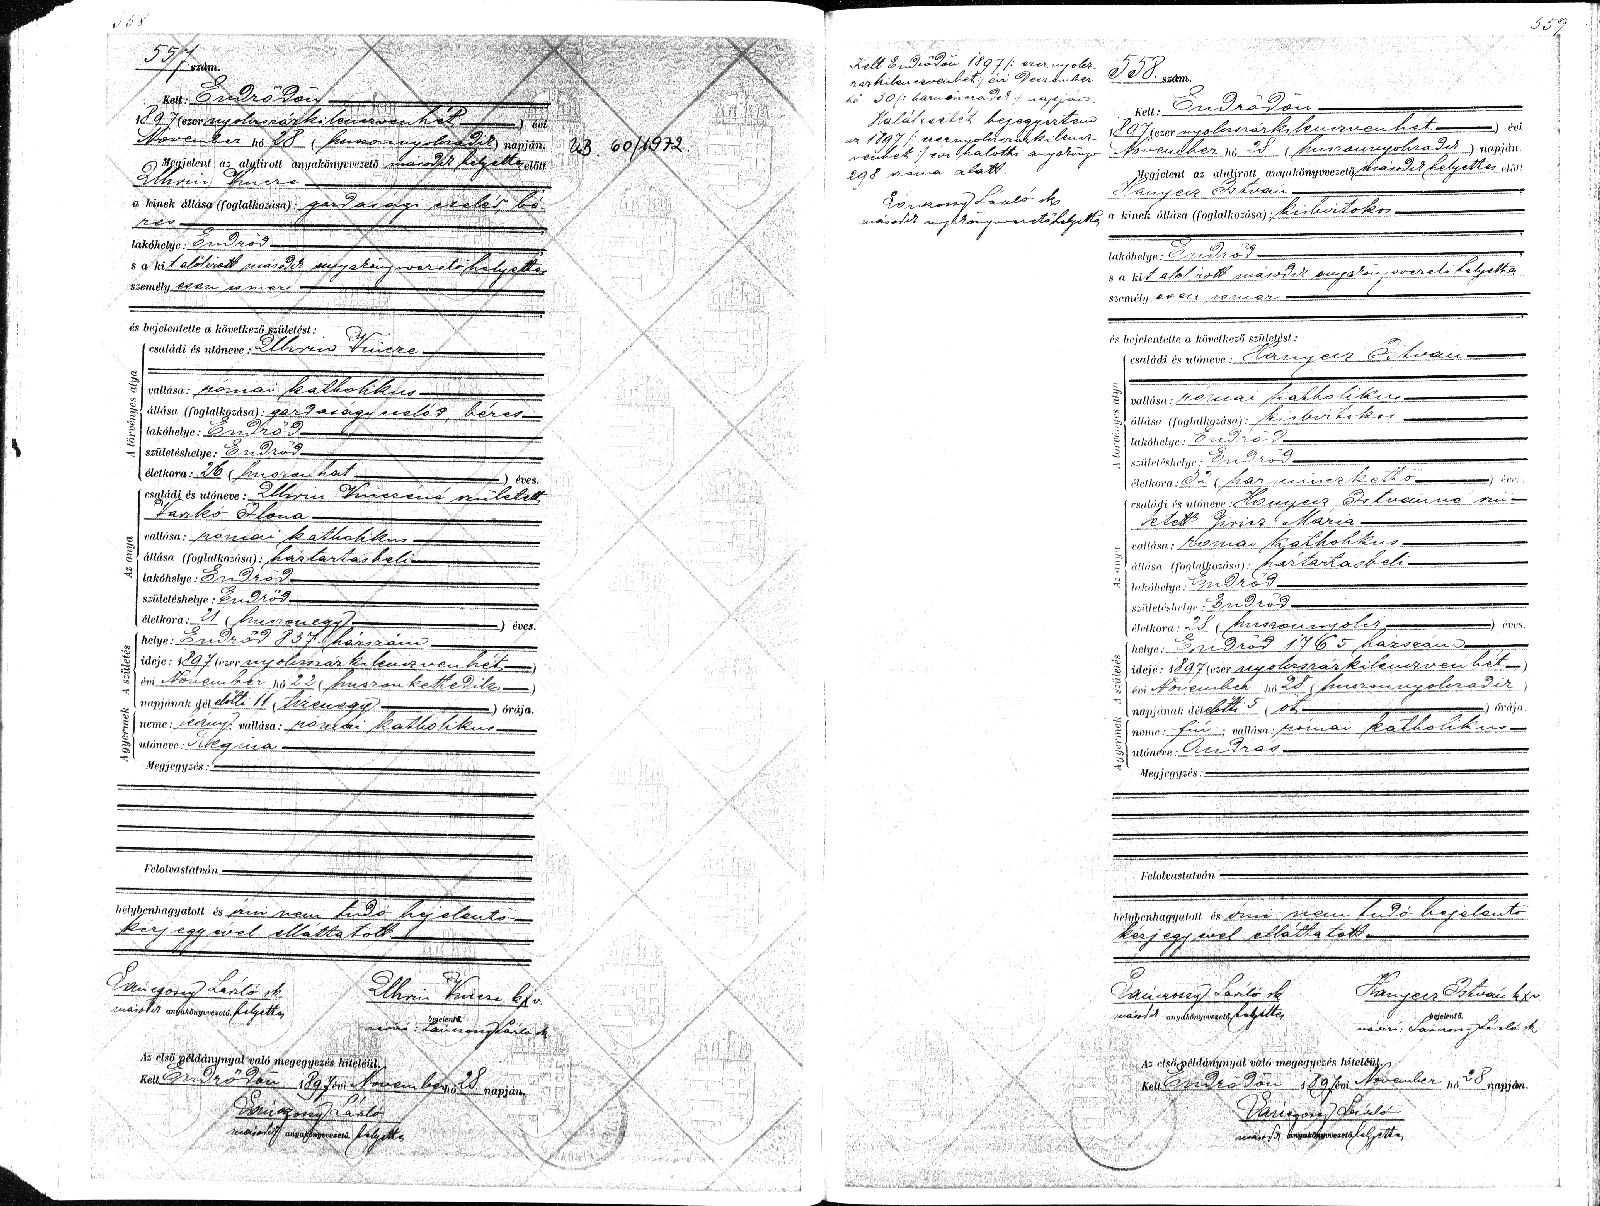 558
557 szám.
Kelt: Endrődön
1897 (ezer nyolcszázkilenczvenhét) évi
November hó 28 (huszonnyolczadik) napján.
Megjelent az alulirott anyakönyvvezető második helyettes előtt
Uhrin Vincze
a kinek állása (foglalkozása): gazdasági cseléd, bé-
res
lakóhelye: Endrőd
s a kit alólirott második anyakönyvvezető helyettes
személyesen ismer
és bejelentette a következő születést:
A törvényes atya
családi és utóneve: Uhrin Vincze
vallása: római katholikus
állása (foglalkozása): gazdasági cseléd, béres
lakóhelye: Endrőd
születéshelye: Endrőd
életkora: 26 (huszonhat) éves.
Az anya
családi és utóneve: Uhrin Vinczéné született
Vaszkó Ilona
vallása: római katholikus
állása (foglalkozása): háztartásbeli
lakóhelye: Endrőd
születéshelye: Endrőd
életkora: 21 (huszonegy) éves.
A születés
helye: Endrőd 837. házszám
ideje: 1897 (ezer nyolczszázkilenczvenhét)
évi November hó 22 (huszonkettedik)
napjának dél előtti 11 (tizenegy) órája.
A gyermek
neme: leány; vallása: római katholikus
utóneve: Regina
Megjegyzés:
Felolvastatván
helybenhagyatott és irni nem tudó bejelentő
kézjegyével elláttatott
László sk
második anyakönyvvezető helyettes
Uhrin Vincze kzv.
bejelentő.
László sk
Az első példánynyal való megegyezés hiteléül.
Kelt Endrődön 1897 évi November hó 28 napján.
László
második anyakönyvvezető helyettes
60/1972.
559
Kelt Endrődön 1897 /: ezernyolcz-
százkilenczvenhét :/ évi December
hó 30 /: harminczadik :/ napján.
Halálesetét bejegyeztem
az 1897 /: ezernyolczszázkilencz-
venhét :/ évi halotti anyakönyv
298 száma alatt.
László sk
második anyakönyvvezetőhelyettes
558. szám.
Kelt: Endrődön
1897 (ezer nyolczszázkilenczvenhét) évi
November hó 28 (huszonnyolczadik) napján.
Megjelent az alulirott anyakönyvvezető második helyettes előtt
Hanyecz István
a kinek állása (foglalkozása): kisbirtokos
lakóhelye: Endrőd
s a kit alólirott második anyakönyvvezető helyettes
személyesen ismer
és bejelentette a következő születést:
A törvényes atya
családi és utóneve: Hanyecz István
vallása: római katholikus
állása (foglalkozása): kisbirtokos
lakóhelye: Endrőd
születéshelye: Endrőd
életkora: 32 (harminczkettő) éves.
Az anya
családi és utóneve: Hanyecz Istvánné szü-
letett Mária
vallása: római katholikus
állása (foglalkozása): háztartásbeli
lakóhelye: Endrőd
születéshelye: Endrőd
életkora: 28 (huszonnyolcz) éves.
A születés
helye: Endrőd 1765 házszám
ideje: 1897 (ezer nyolczszázkilenczvenhét)
évi November hó 28 (huszonnyolczadik)
napjának dél előtti 5 (öt) órája.
A gyermek
neme: fiú; vallása: római katholikus
utóneve: András
Megjegyzés:
Felolvastatván
helybenhagyatott és irni nem tudó bejelentő
kézjegyével elláttatott.
László sk
második anyakönyvvezető helyettes
Hanyecz István kzv
bejelentő.
László sk
Az első példánynyal való megegyezés hiteléül.
Kelt Endrődön 1897 évi November hó 28 napján.
László
második anyakönyvvezető helyettes